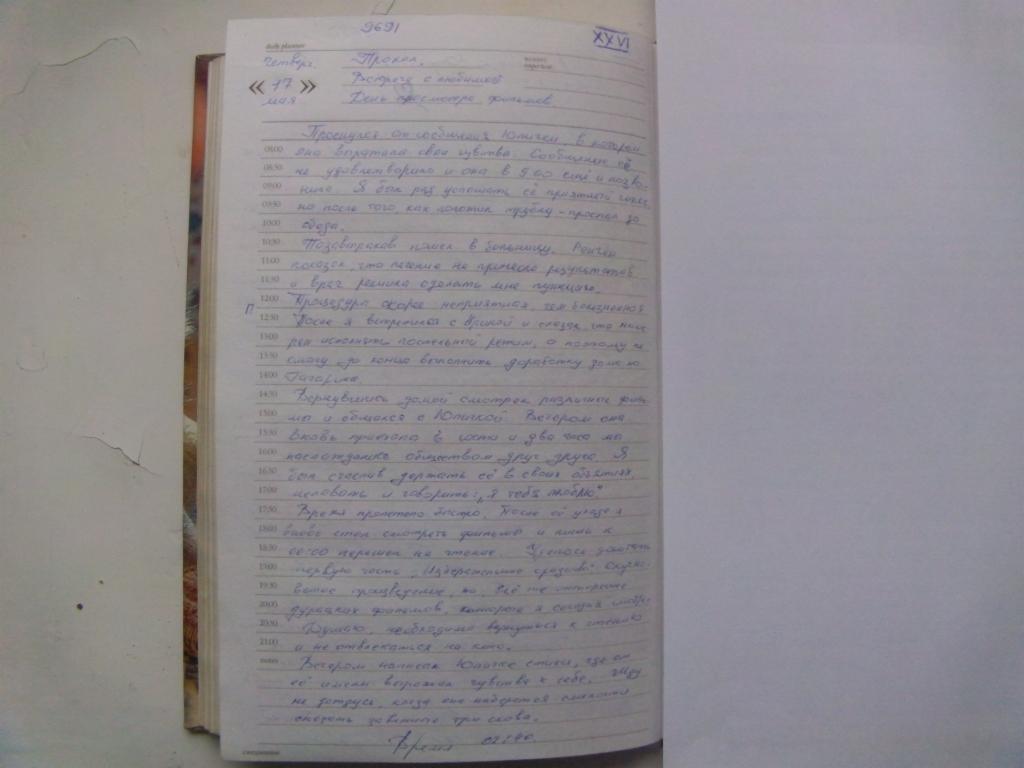 9691
XXVI
daily planner
Четверг. Прокол.
« 17 » Встреча с любимой
мая День просмотра фильмов
Проснулся от сообщения Юлички, в котором
08:00 она выражала свои чувства. Сообщение её
08:30 не удовлетворило и она в 9.00 ещё и позво-
09:00 нила. Я был рад услышать её приятный голос,
09:30 но после того, как положил трубку - проспал до
10:00 обеда.
10:30 Позавтракав пошёл в больницу. Рентген
11:00 показал, что лечение не принесло результатов
11:30 и врач решила сделать мне пункцию.
12:00 Процедура скорее неприятная, чем болезненная
П 12:30 После я встретился с Ириной и сказал, что наме-
13:00 рен исполнять постельный режим, а поэтому не
13:30 смогу до конца выполнить доработку дома на
14:00 Гагарина.
14:30 Вернувшись домой смотрел различные филь-
15:00 мы и общался с Юличкой. Вечером она
15:30 вновь приехала в гости и два часа мы
16:00 наслаждались обществом друг друга. Я
16:30 был счастлив держать её в своих объятиях,
17:00 целовать и говорить: „я тебя люблю"
17:30 Время пролетело быстро. После её ухода я
18:00 вновь стал смотреть фильмы и лишь к
18:30 00:00 перешёл на чтение. дочитать
19:00 первую часть
19:30 произведение, но, всё же интереснее
20:00 дурацких фильмов, которые я сегодня
20:30 Думаю, необходимо вернуться к чтению
21:00 и не отвлекаться на кино.
notes Вечером написал Юличке стихи, где от
её имени выражал чувства к себе. Жду
не дождусь, когда она наберётся смелости
сказать заветные три слова.
Время 02:40.